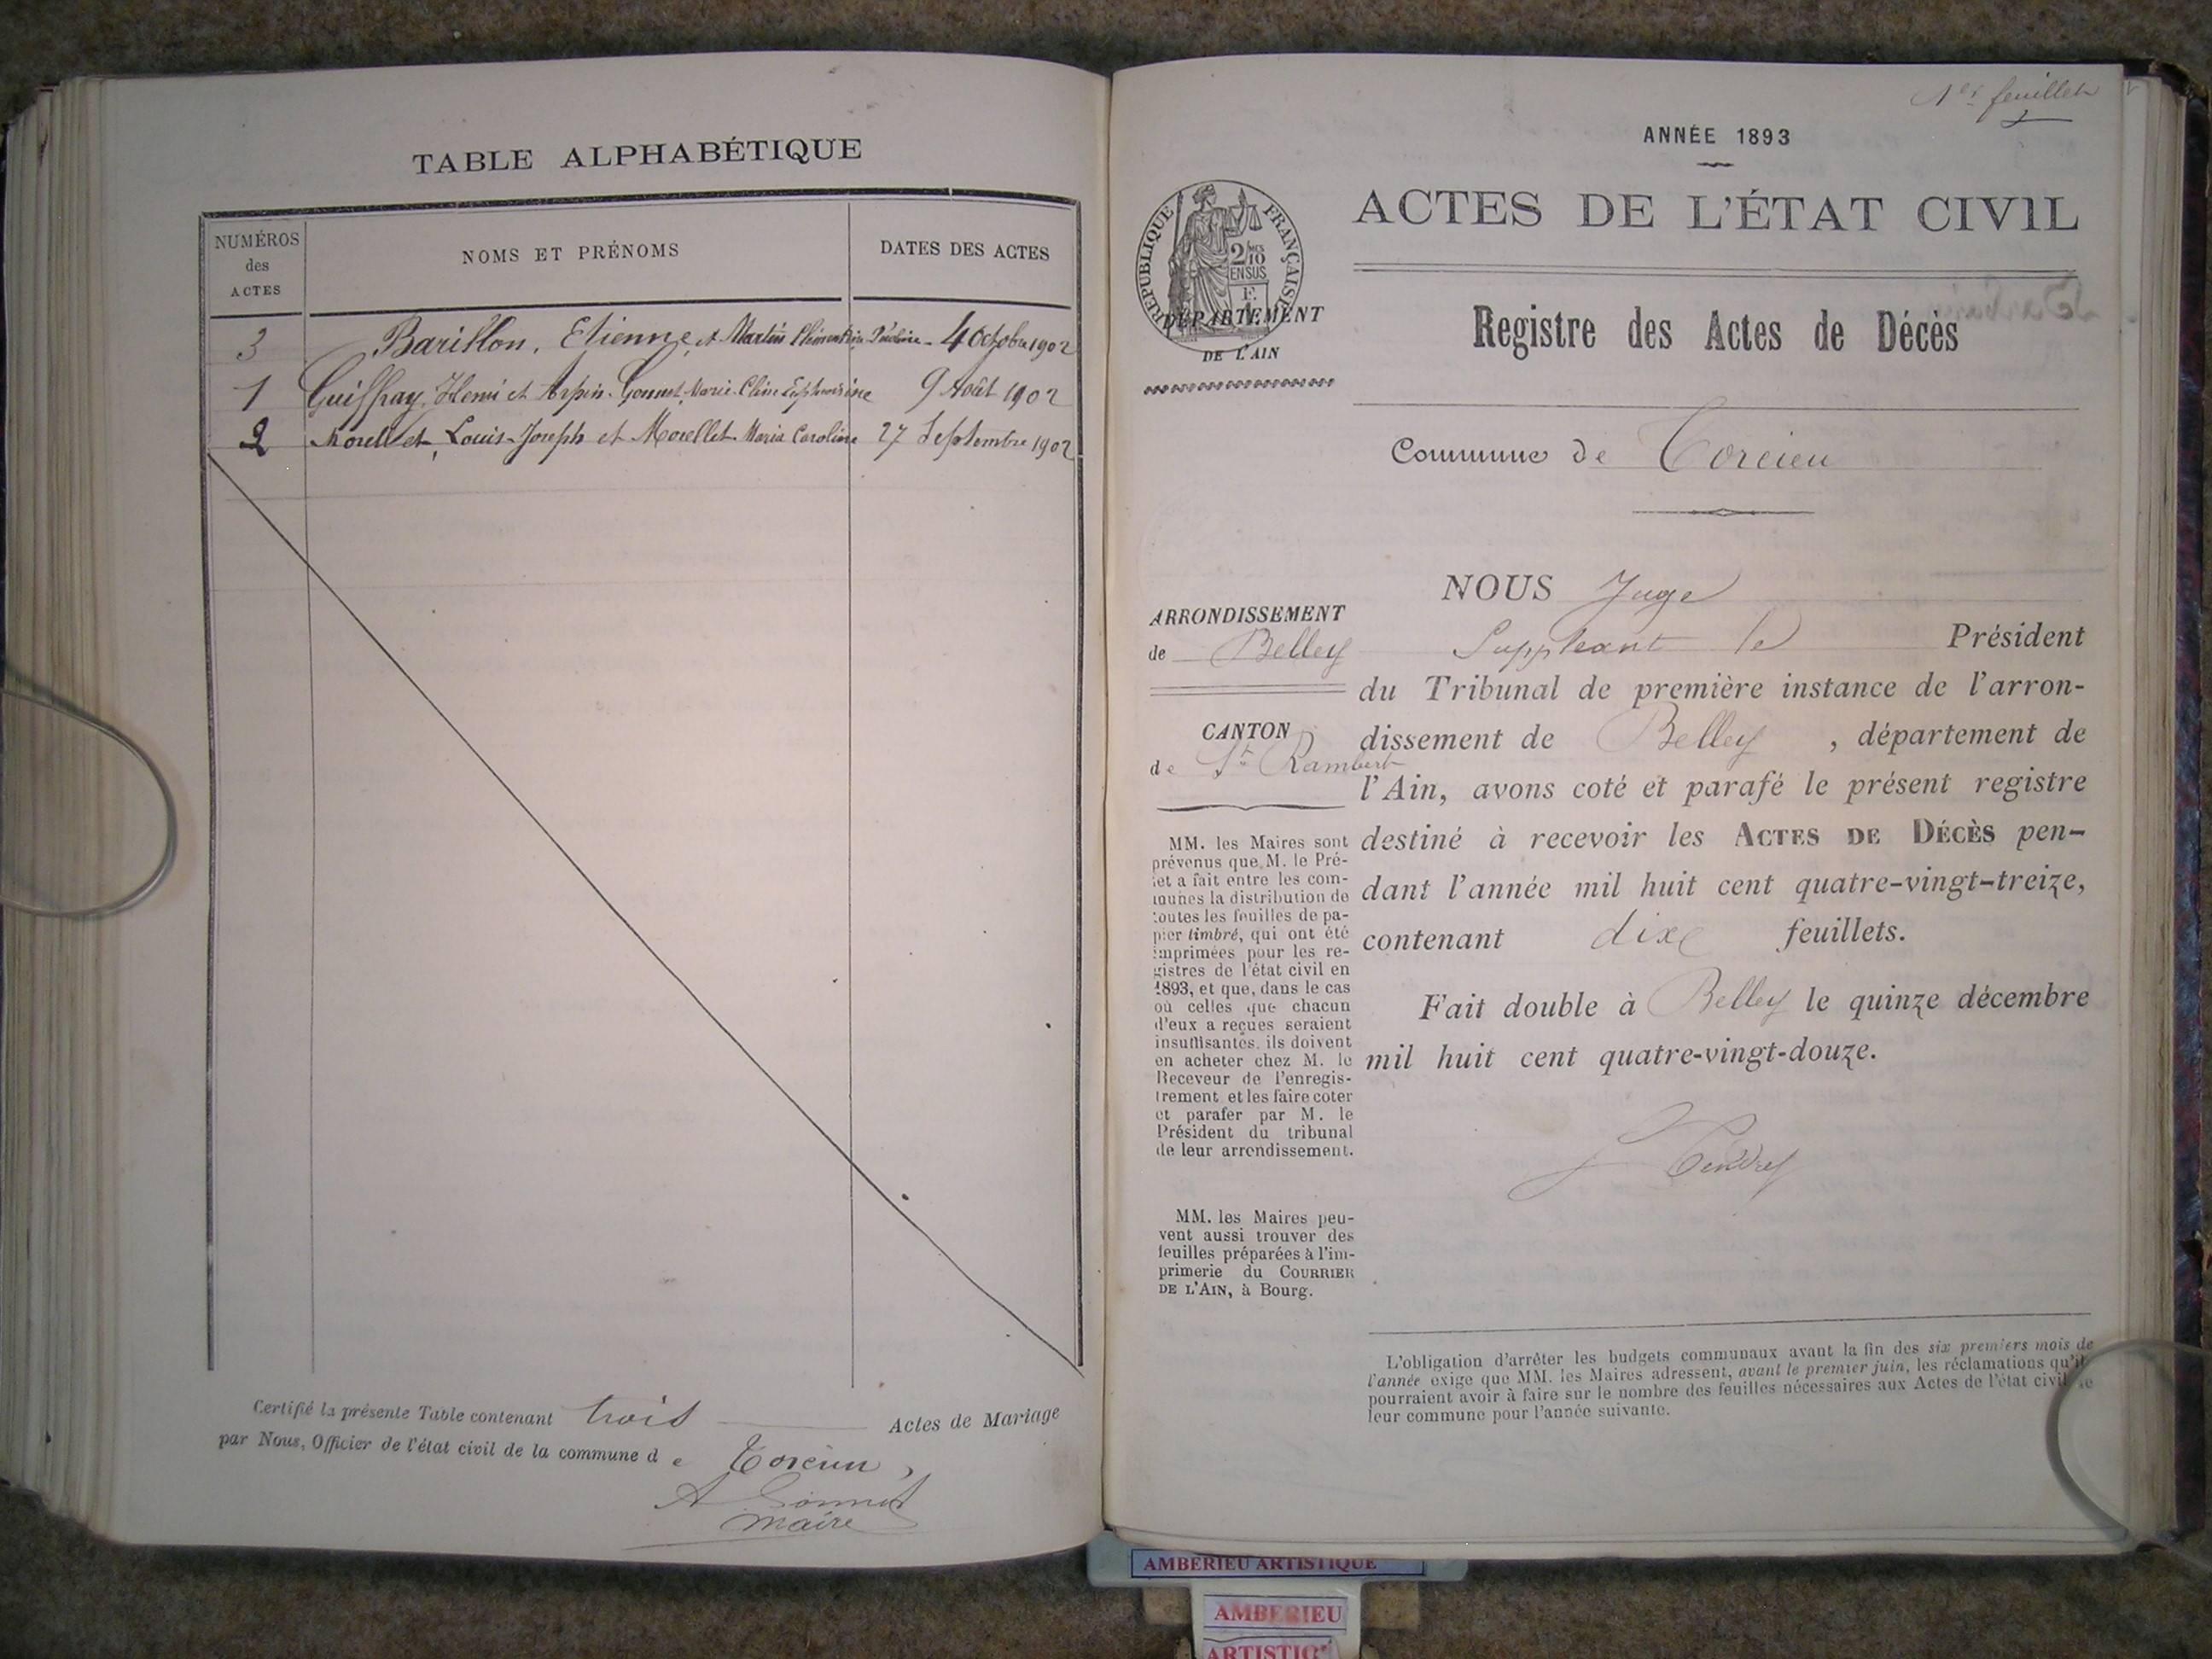 TABLE ALPHABÉTIQUE
NUMÉROS
des
ACTES
NOMS ET PRÉNOMS
DATES DES ACTES
3 Barillon, Etienne et Martin 4 Octobre 1902
1 Guiffray, Henri et Arpin-Gonnet, Marie 9 Août 1902
2 Morellet, Louis-Joseph et Morellet Maria Caroline 27 Septembre 1902
Certifié la présente Table contenant trois Actes de Mariage
par Nous, Officier de l'état civil de la commune de Torcieu,
A Gonnet
maire
1er feuillet
ANNÉE 1893
RÉPUBLIQUE FRANÇAISE
2/10
EN SUS
DÉPARTEMENT
DE L'AIN
ACTES DE L'ÉTAT CIVIL
Registre des Actes de Décès
Commune de Torcieu
ARRONDISSEMENT
de Belley
CANTON
de St Rambert
MM. les Maires sont
prévenus que M. le Pré-
fet a fait entre les com-
munes la distribution de
toutes les feuilles de pa-
pier timbré, qui ont été
imprimées pour les re-
gistres de l'état civil en
1893, et que, dans le cas
où celles que chacun
d'eux a reçues seraient
insuffisantes, ils doivent
en acheter chez M. le
Receveur de l'enregis-
trement et les faire coter
et parafer par M. le
Président du tribunal
de leur arrondissement.
MM. les Maires peu-
vent aussi trouver des
feuilles préparées à l'im-
primerie du COURRIER
DE L'AIN, à Bourg.
NOUS Juge
Suppléant le Président
du Tribunal de première instance de l'arron-
dissement de Belley, département de
l'Ain, avons coté et parafé le présent registre
destiné à recevoir les ACTES DE DÉCÈS pen-
dant l'année mil huit cent quatre-vingt-treize,
contenant dix feuillets.
Fait double à Belley le quinze décembre
mil huit cent quatre-vingt-douze.
L'obligation d'arrêter les budgets communaux avant la fin des six premiers mois de
l'année exige que MM. les Maires adressent, avant le premier juin, les réclamations qu'ils
pourraient avoir à faire sur le nombre des feuilles nécessaires aux Actes de l'état civil de
leur commune pour l'année suivante.
AMBERIEU ARTISTIQUE
AMBERIEU
ARTISTIQ